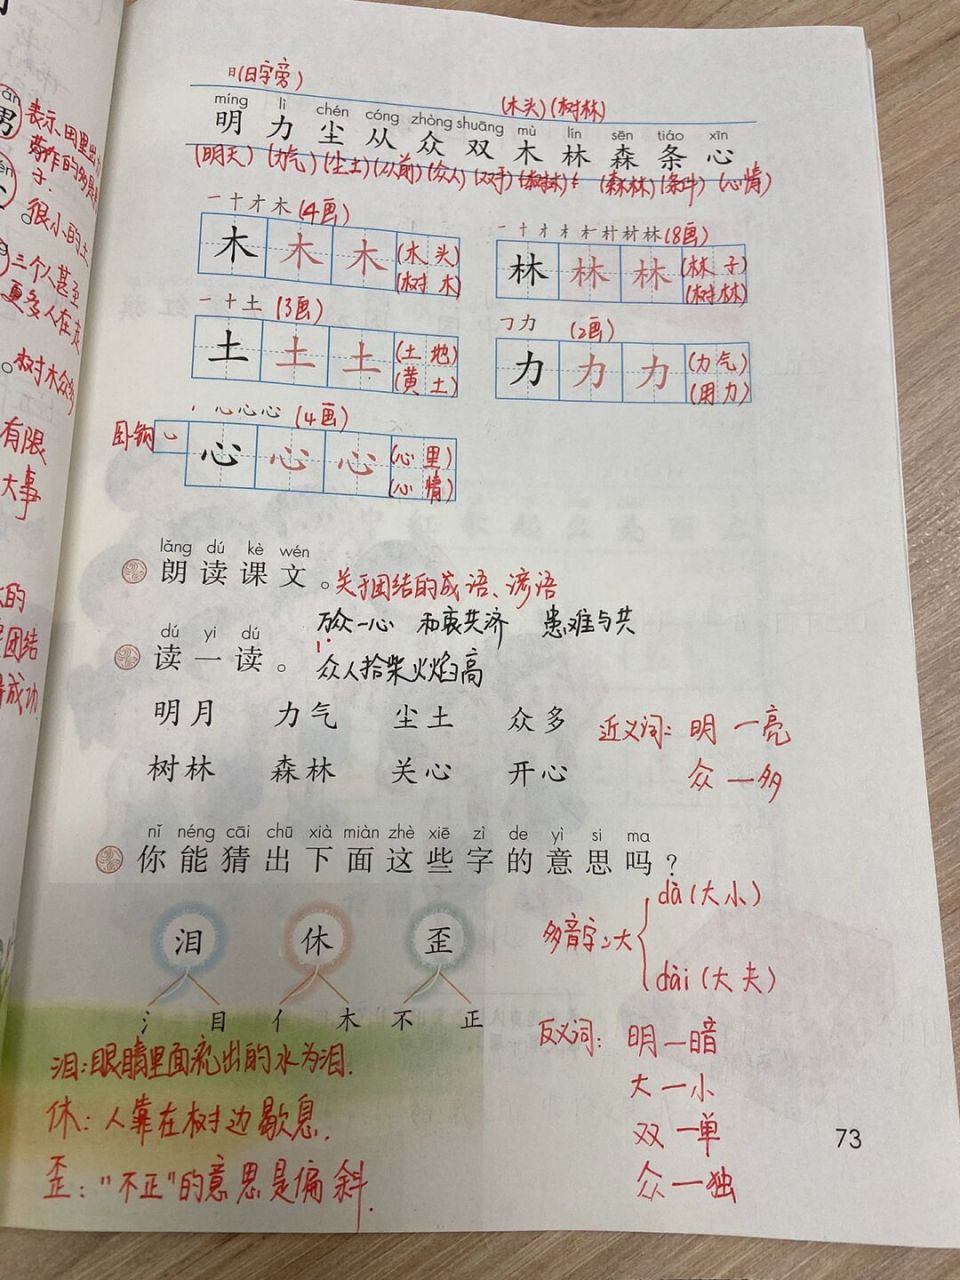 日(日字旁)
(木头)(树林)
míng lì chén cóng zhòng shuāng mù lín sēn tiáo xīn
明 力 尘 从 众 双 木 林 森 条 心
(明天) (力气) (尘土) (从前) (众人) (双手) (树林) (森林) (条件) (心情)
一 十 才 木 (4画)
木 木 木 (木 头)
(树 木)
一 十 才 木 木 村 材 林 (8画)
林 林 林 (林 子)
(树 林)
一 十 土 (3画)
土 土 土 (土 地)
(黄 土)
㇆ 力 (2画)
力 力 力 (力 气)
(用 力)
心 心 心 (4画)
卧钩 ㇃ 心 心 心 (心 里)
(心 情)
lǎng dú kè wén
朗 读 课 文 。关于团结的成语、谚语
万众一心 和衷共济 患难与共
dú yi dú
读 一 读 。 众人拾柴火焰高
明月 力气 尘土 众多
树林 森林 关心 开心
近义词: 明 — 亮
众 — 多
nǐ néng cāi chū xià miàn zhè xiē zì de yì si ma
你 能 猜 出 下 面 这 些 字 的 意 思 吗 ?
泪 休 歪
氵 目 亻 木 不 正
多音字:大
dà (大小)
dài (大夫)
泪:眼睛里面流出的水为泪.
休:人靠在树边歇息.
歪:"不正"的意思是偏斜.
反义词: 明 — 暗
大 — 小
双 — 单
众 — 独
73
表示、田里出
子.
很小的土
三个人甚至
更多人在走
。树木众多
有限
大事
团结
成功